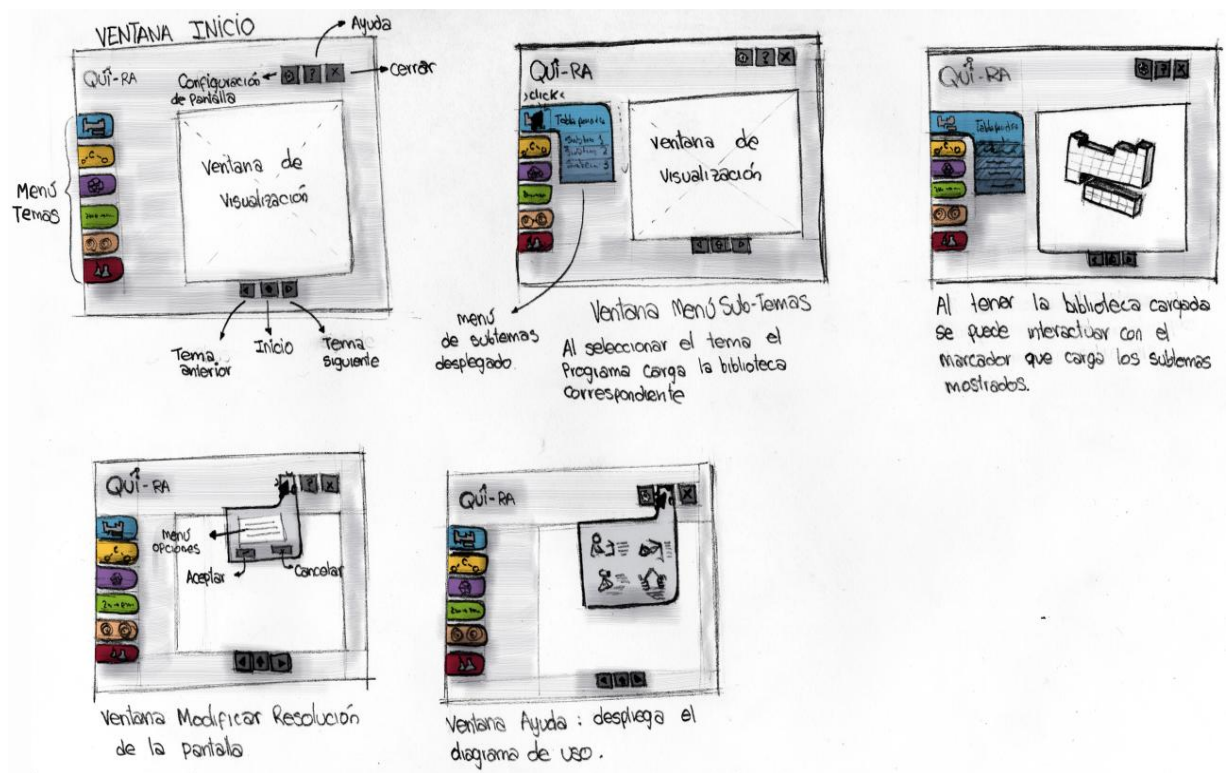 VENTANA INICIO
Ayuda
QUÍ-RA
Configuración
de pantalla
?
X
cerrar
Menú
Temas
C
Ventana de
Visualización
Tema
anterior
Inicio
Tema
siguiente
QUÍ-RA
? X
>click<
Tabla periodica
Subtema 1
Subtema 2
Subtema 3
C
Ventana de
Visualización
menú
de subtemas
desplegado.
Ventana Menú Sub-Temas
Al seleccionar el tema el
Programa carga la biblioteca
correspondiente
QUÍ-RA
? X
Tabla periodica
Al tener la biblioteca cargada
se puede interactuar con el
marcador que carga los subtemas
mostrados.
QUÍ-RA
? X
C
Menú
opciones
Aceptar
Cancelar
Ventana Modificar Resolución
de la pantalla
QUÍ-RA
X
C
Ventana Ayuda : despliega el
diagrama de uso.